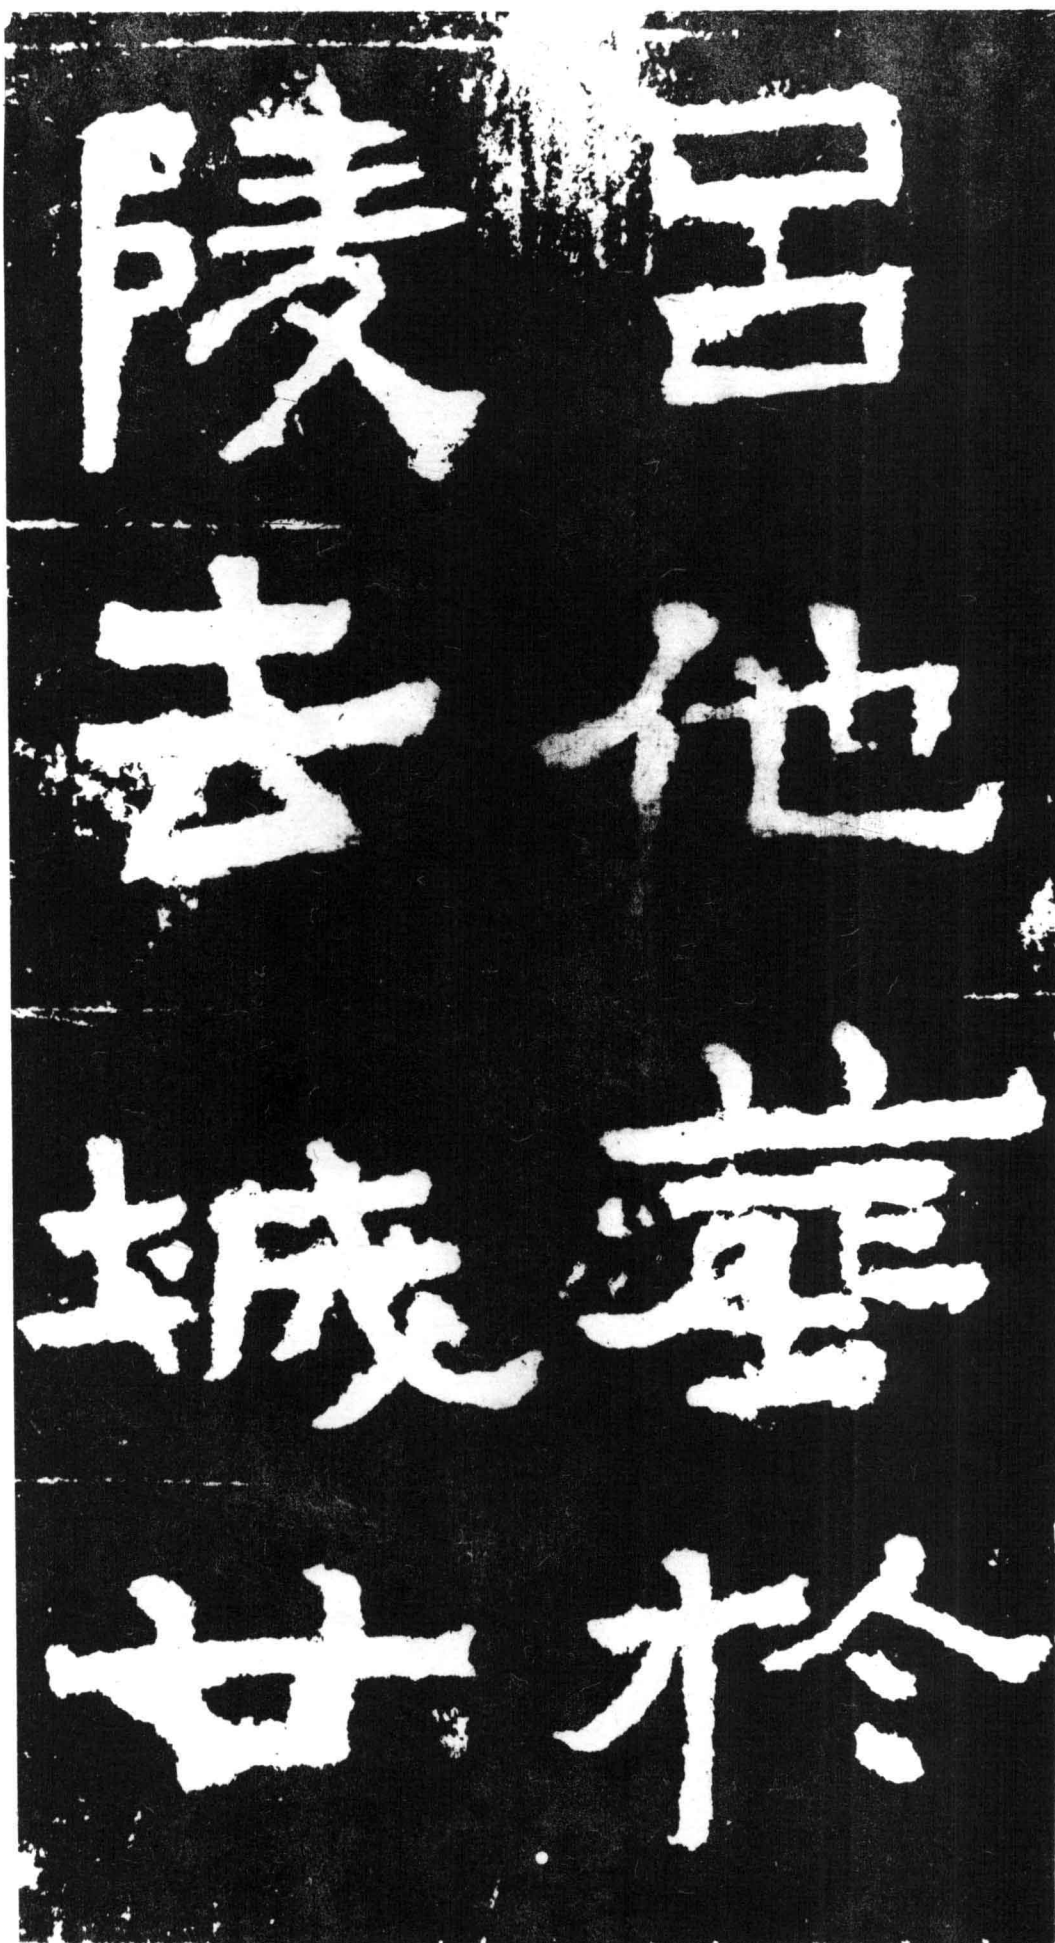 呂他塟於
陵去城廿